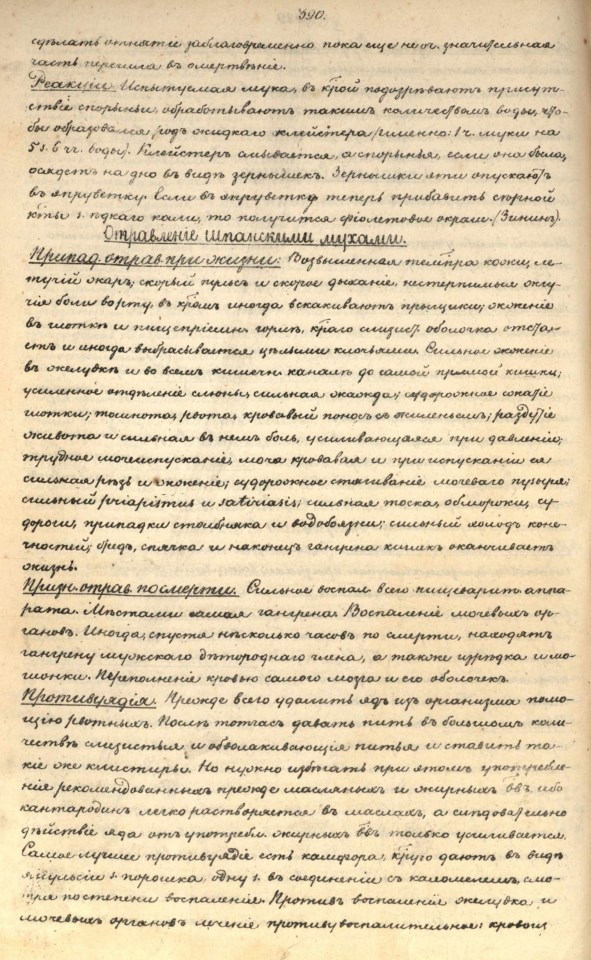 590.
сдѣлать отнятіе заблаговременно пока еще не оч. значительная
часть перешла въ омертвѣніе.
Реакціи. Испытуемая мука, въ к͞рой подозрѣваютъ присут-
ствіе спорыньи, обработываютъ такимъ количествомъ воды, что-
бы образовался родъ жидкаго клейстера (именно: 1 ч. муки на
5 s. 6 чч. воды). Клейстеръ смывается, а спорынья, если она была,
осядетъ на дно въ видѣ зернышекъ. Зернышки эти опускаютъ
въ эпруветку. Если въ эпруветку теперь прибавить сѣрной
к͞ты s. ѣдкаго кали, то получится фіолетовое окраш. (Зининъ).
Отравленіе шпанскими мухами.
Припад. отрав. при жизни: Возвышенная темп͞ра кожи, ле-
тучій жаръ; скорый пульсъ и скорое дыханіе, нестерпимые жгу-
чіе боли во рту, въ к͞ромъ иногда вскакиваютъ прыщики; жженіе
въ глоткѣ и пищепріемн. горлѣ, к͞раго слизист. оболочка отста-
етъ и иногда выбрасывается цѣлыми клочьями. Сильное жженіе
въ желудкѣ и во всемъ кишечн. каналѣ до самой прямой кишки;
усиленное отдѣленіе слюны, сильная жажда; судорожное сжатіе
глотки; тошнота, рвота, кровавый поносъ съ жиленьемъ; раздутіе
живота и сильная въ немъ боль, усиливающаяся при давленіи;
трудное мочеиспусканіе, моча кровавая и при испусканіи ея
сильная рѣзь и жженіе; судорожное стягиваніе мочеваго пузыря;
сильный priapismus и satiriasis; сильная тоска, обмороки, су-
дороги, припадки столбняка и водобоязни; сильный холодъ коне-
чностей; бредъ, спячка и наконецъ гангрена кишекъ оканчиваетъ
жизнь.
Призн. отрав. по смерти. Сильное воспал. всего пищеварит. аппа-
рата. Мѣстами самая гангрена. Воспаленіе мочевыхъ ор-
гановъ. Иногда, спустя нѣсколько часовъ по смерти, находятъ
гангрену мужскаго дѣтороднаго члена, а также изрѣдка и мо-
шонки. Переполненіе кровью самого мозга и его оболочекъ.
Противуядія. Прежде всего удалить ядъ изъ организма помо-
щію рвотныхъ. Послѣ тотчасъ давать пить въ большомъ коли-
чествѣ слизистыя и обволакивающія питья и ставить та-
кіе же клистиры. Но нужно избѣгать при этомъ употребле-
нія рекомендованныхъ прежде масляныхъ и жирныхъ в͞въ ибо
кантародинъ легко растворяется въ маслахъ, а слѣдовательно
дѣйствіе яда отъ употребл. жирныхъ в͞въ только усиливается.
Самое лучшее противуядіе есть камфора, к͞рую даютъ въ видѣ
эмульсіи s. порошка, одну s. въ соединеніи съ каломелемъ, смо-
тря по степени воспаленія. Противъ воспаленія желудка и
мочевыхъ органовъ леченіе противувоспалительное: кровоиз